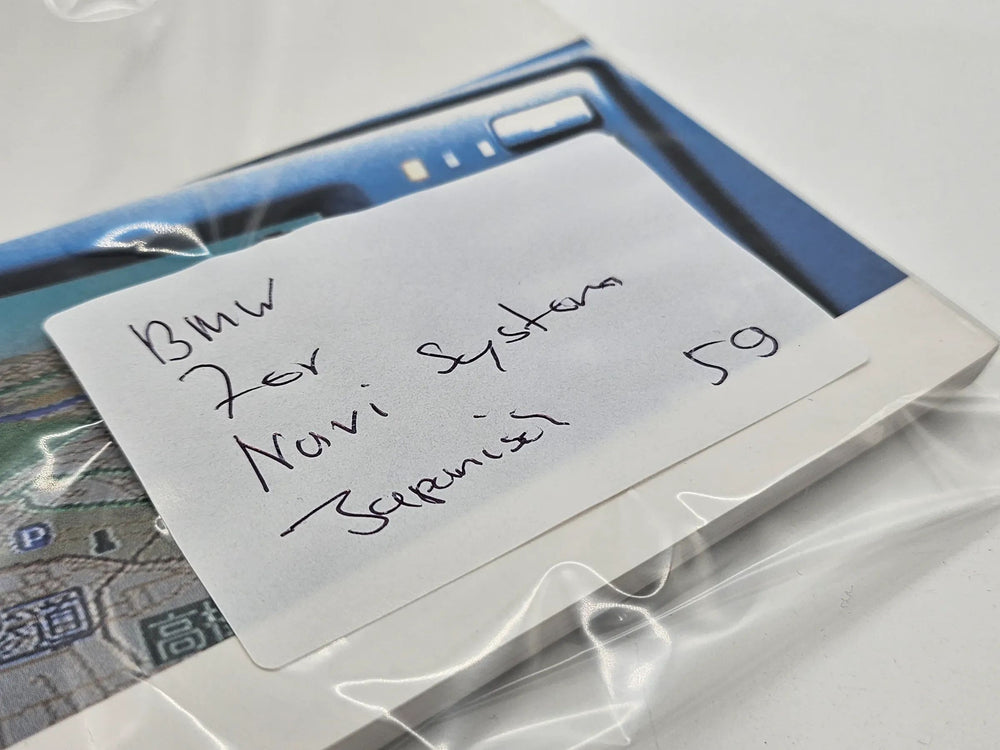 BMW
7er
Navi System
Japanisch 59
P
高